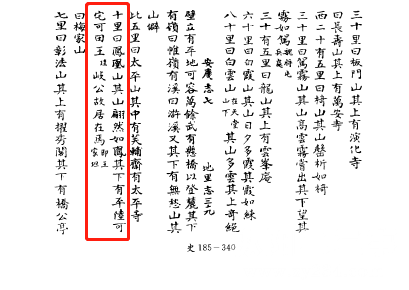 三十里曰板門山其上有演化寺
曰長壽山其上有萬安寺
西二十有五里曰椅山其山盤斫如椅
三十里曰駕霧山其山高雲霧嘗出其下望其
霧如駕
三十有五里曰龍山其上有雲峯庵
六十里曰白雲山其山日夕多其霞如練
八十里曰白雲山在天堂山下其山多雲其上奇絕
安慶志七 地里志三九
壁立有平地可容萬餘武有懸橋以登麓其下
有嶺曰帷嶺有溪曰游溪又其下有無愁山其
山僻
比五里曰太平山其中有芙蓉齋有太平寺
十里曰鳳凰山其山翩然如鳳其下有平陸可
宅可田王以岐公故居在焉即王家坦
曰梅家山
七里曰彰法山其上有擢秀閣其下有橋公亭
史185-340